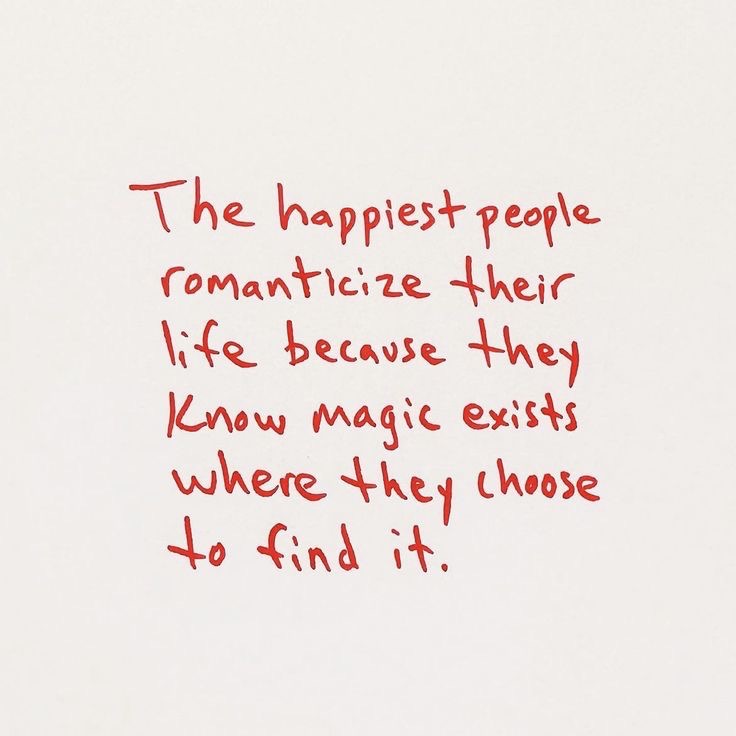 The happiest people
romanticize their
life because they
know magic exists
where they choose
to find it.